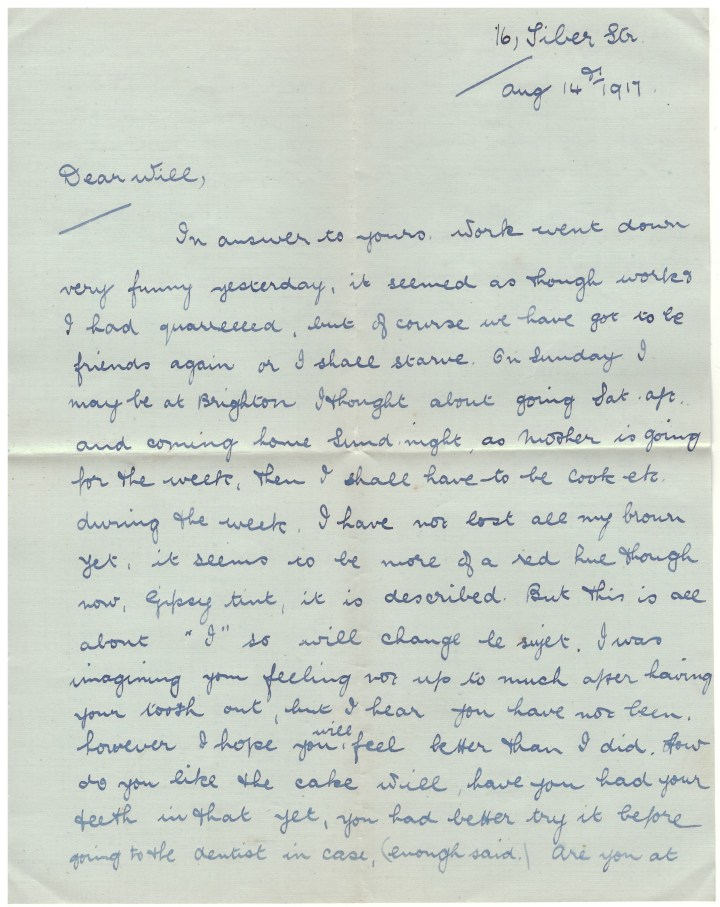 16, Siber Str.
Aug 14th 1917.
Dear Will,
In answer to yours. Work went down
very funny yesterday, it seemed as though work &
I had quarrelled, but of course we have got to be
friends again or I shall starve. On Sunday I
may be at Brighton I thought about going Sat. aft.
and coming home Sund. night, as Mother is going
for the week, then I shall have to be cook etc.
during the week. I have not lost all my brown
yet, it seems to be more of a red hue though
now, Gipsy tint, it is described. But this is all
about "I" so will change le sujet. I was
imagining you feeling not up to much after having
your tooth out, but I hear you have not been,
however I hope you will feel better than I did. How
do you like the cake Will, have you had your
teeth in that yet, you had better try it before
going to the dentist in case, (enough said.) Are you at